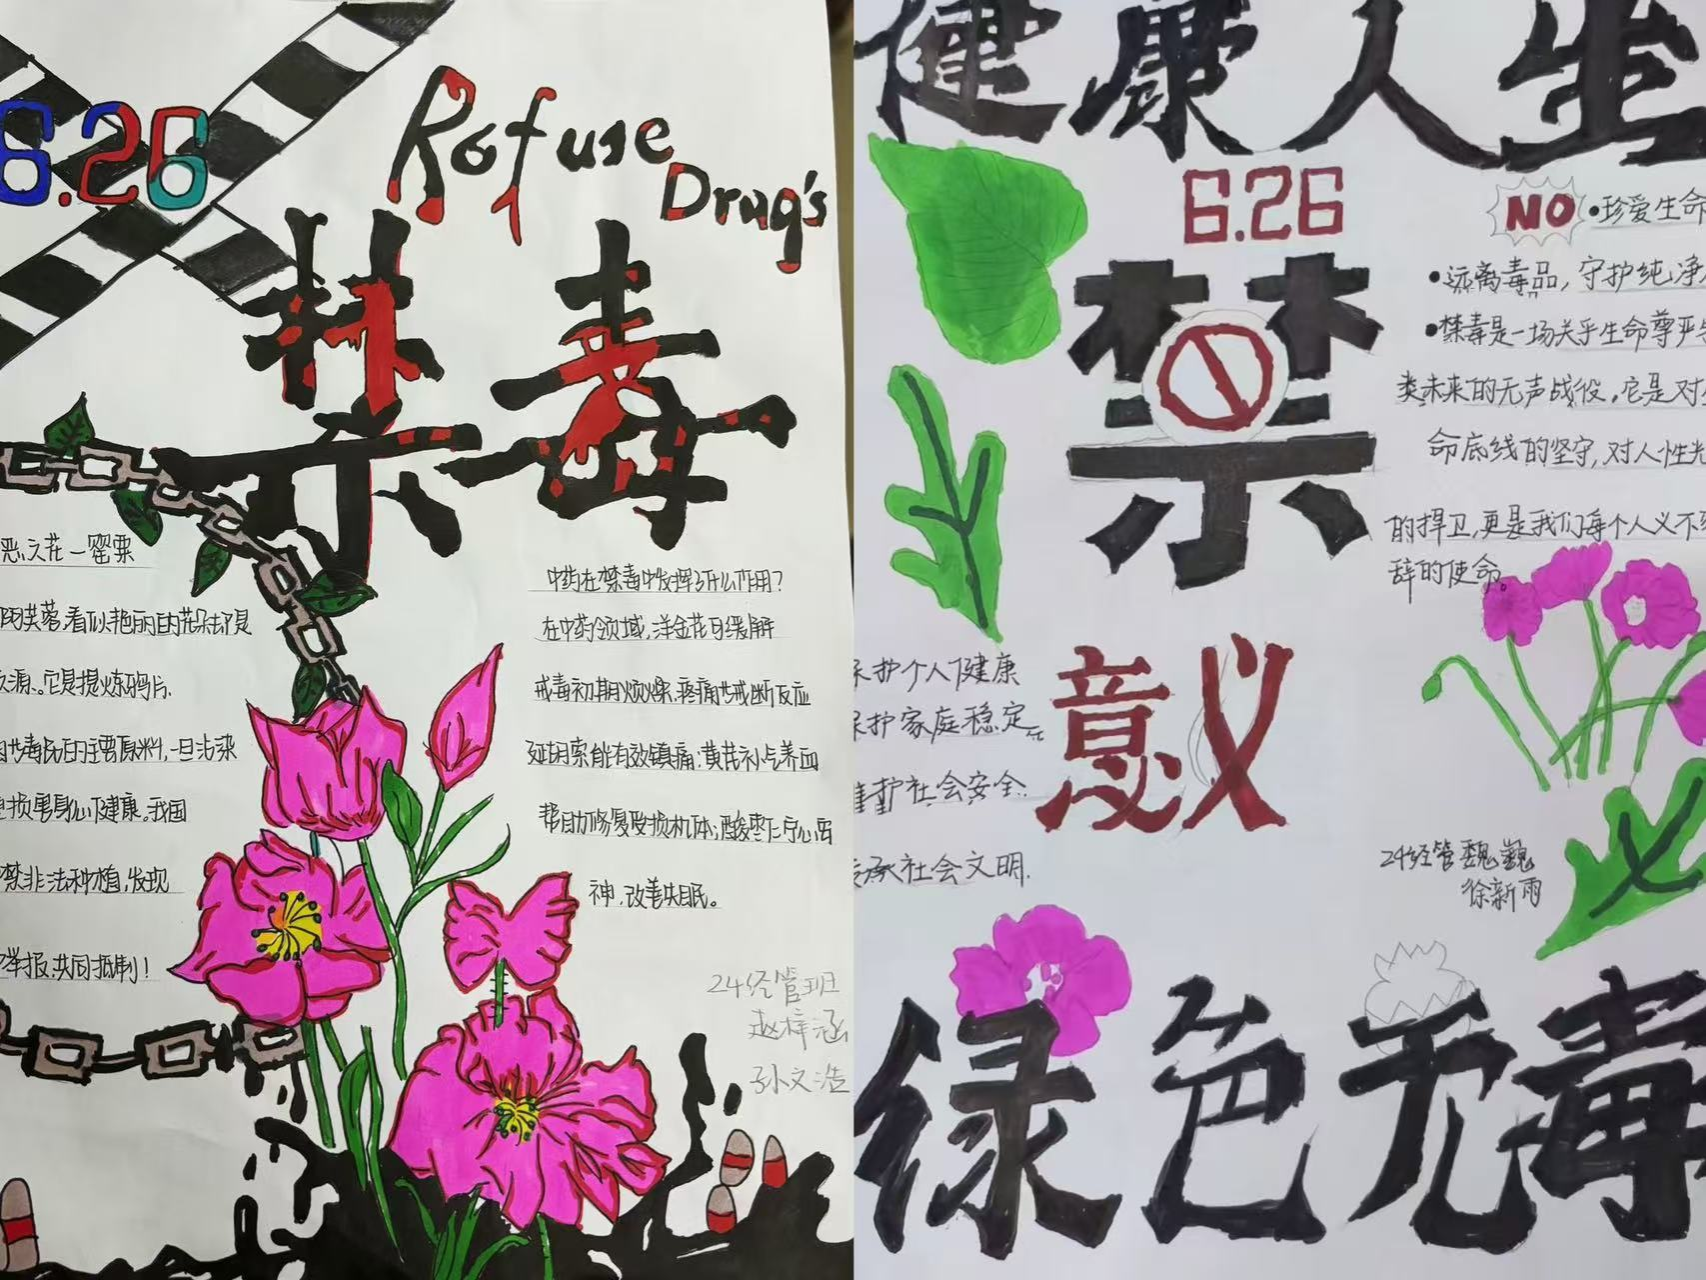 6.26
Refuse
Drug's
禁毒
恶之花一罂粟
阿芙蓉.看似艳丽的花朵却是
之源.它是提炼鸦片.
毒品的主要原料,一旦沾染
损害身心健康.我国
禁非法种植,发现
举报.共同抵制!
中药在禁毒中发挥了什么作用?
在中药领域,洋金花可缓解
戒毒初期烦燥.疼痛戒断反应
延胡索能有效镇痛;黄芪补气养血
帮助修复受损机体;酸枣仁宁心安
神.改善失眠。
24经管班
赵梓涵
孙文浩
健康人生
6.26
禁
NO
•珍爱生命
•远离毒品,守护纯净
•禁毒是一场关乎生命尊严
类未来的无声战役.它是对
命底线的坚守,对人性光
的捍卫,更是我们每个人义不
辞的使命。
意义
护个人健康
保护家庭稳定
护社会安全.
承社会文明.
24经管魏巍
徐新雨
绿色无毒